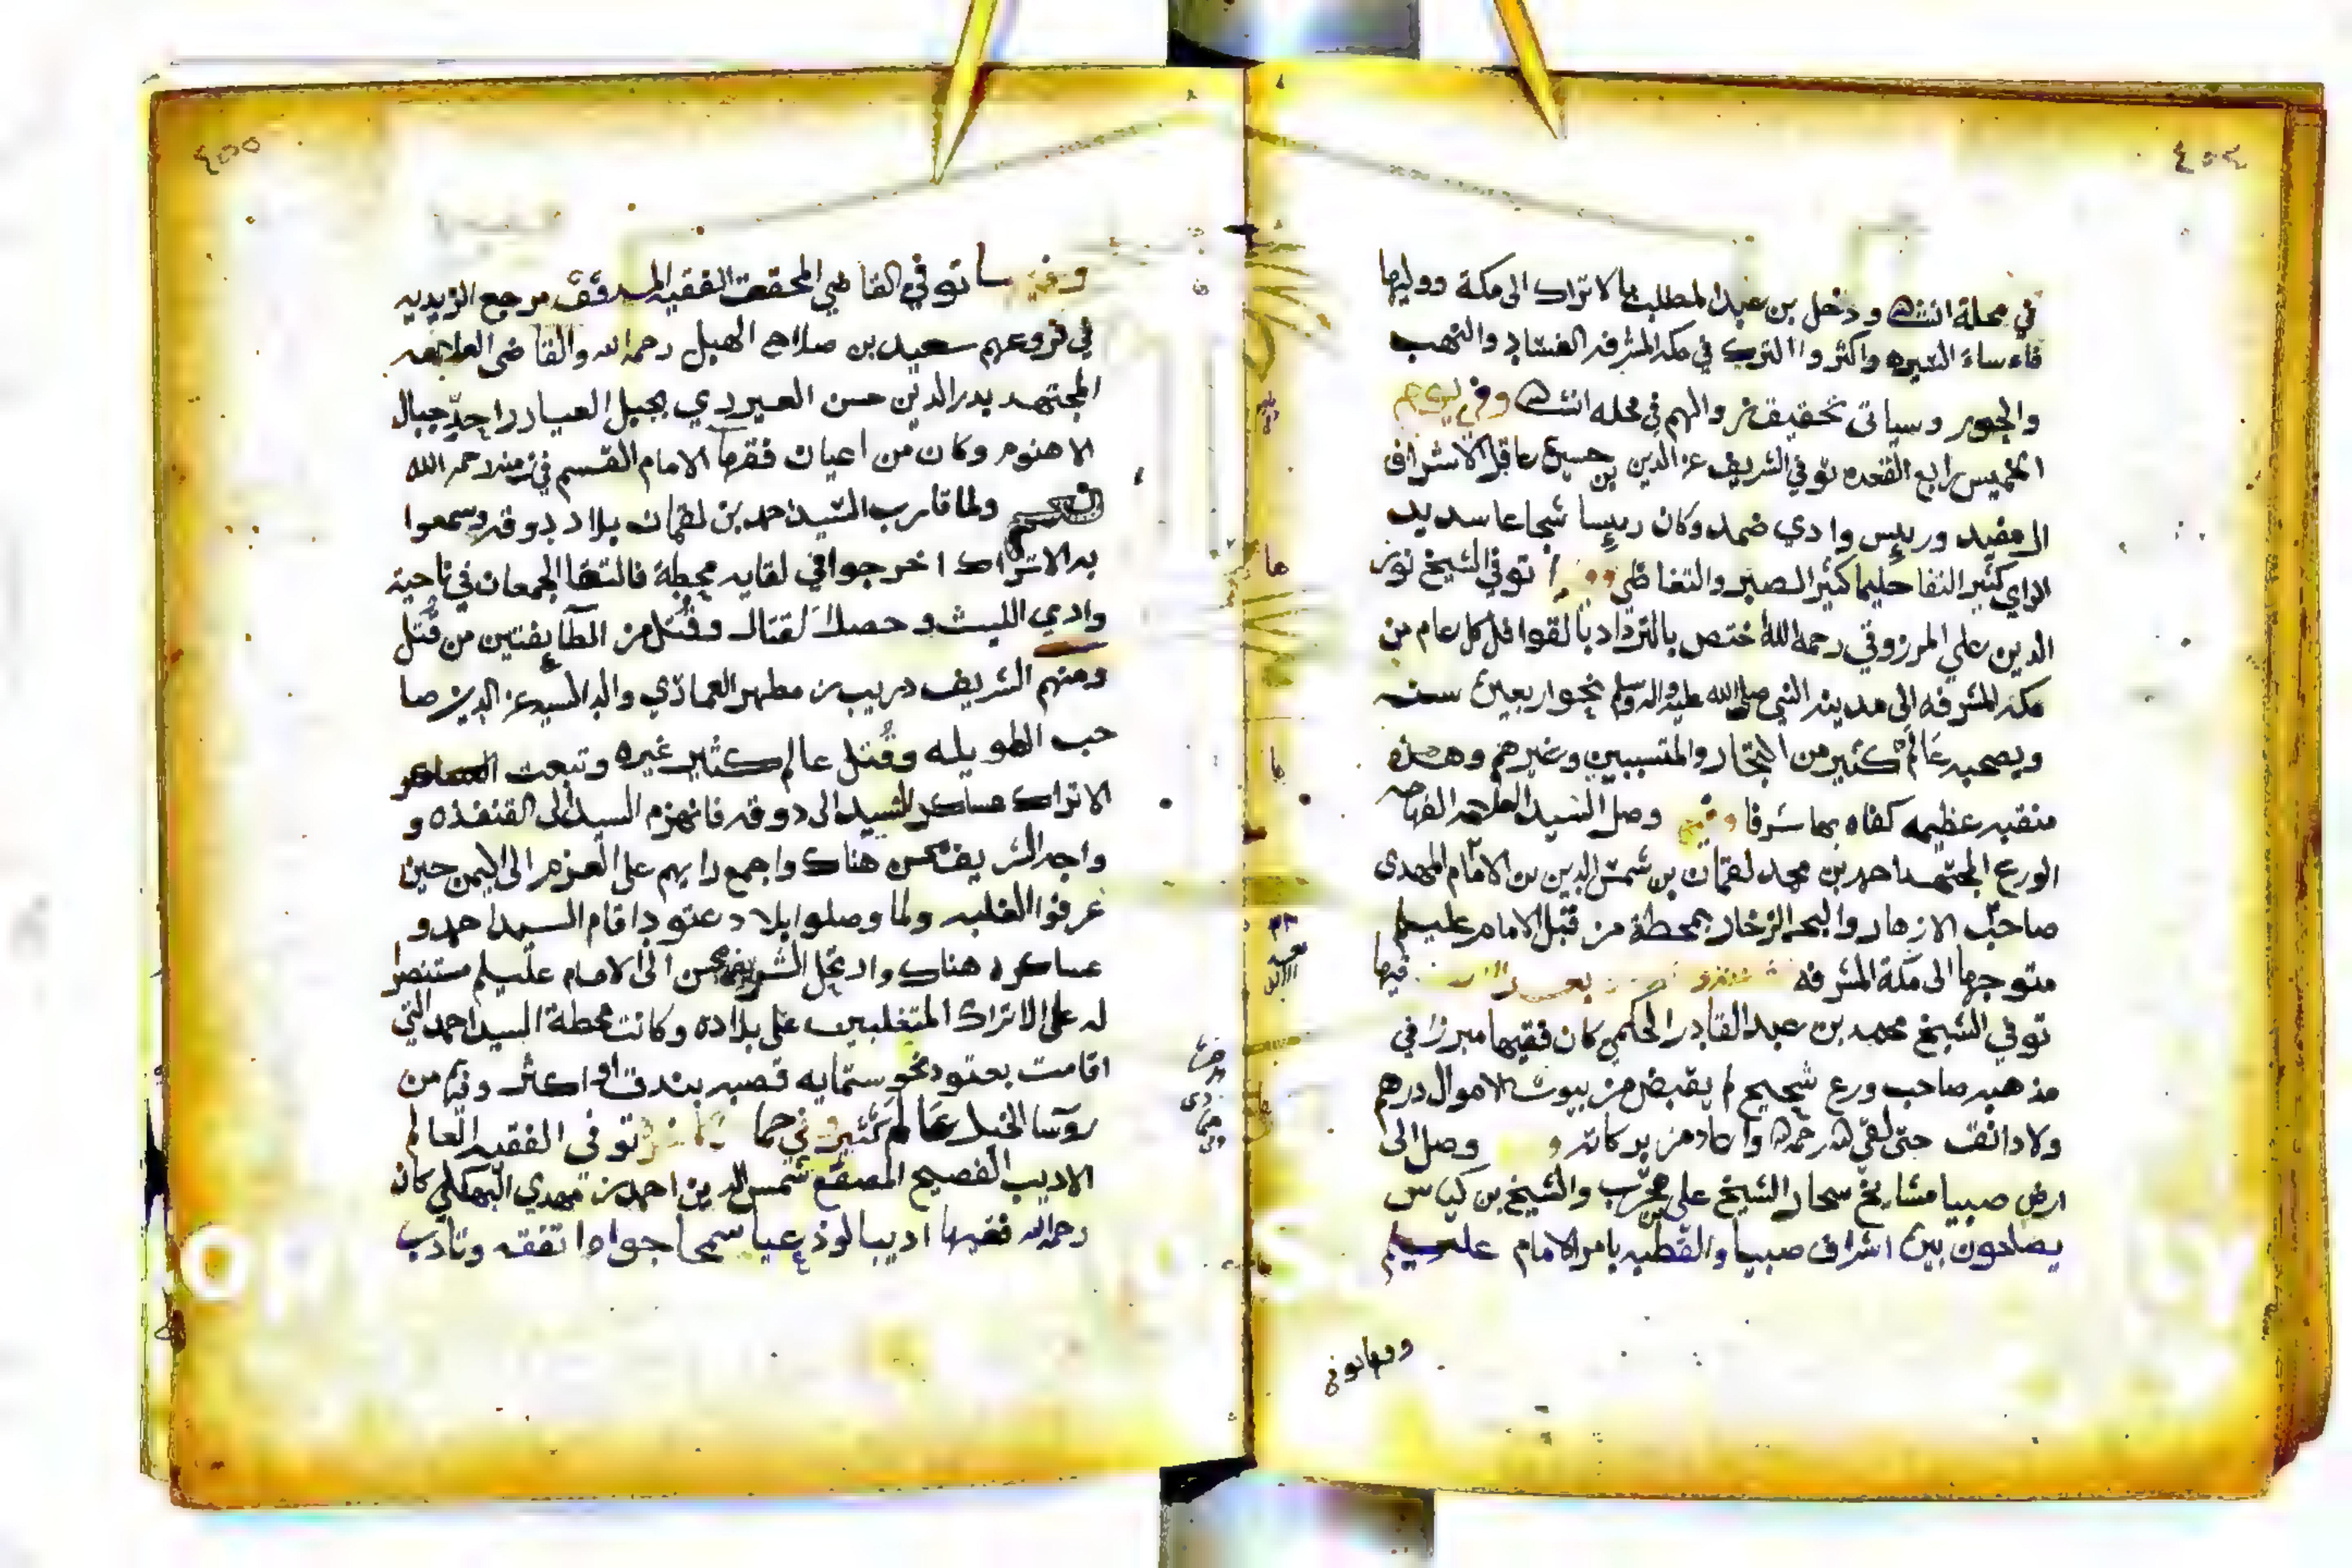 ٤٥٤
في محله انشاالله ودخل بن عبد المطلب بالاتراك الى مكة ووليها
فاءساء السيره واكثروا الترك في مكه المشرفه الفساد والنهب
والجور وسياتى تحقيق زوالهم في محله انشاالله وفي يوم
الخميس رابع القعده توفي الشريف عز الدين بن حسين عاقل الاشراف
ورييس وادي ضمد وكان رييسا شجاعا سديد
الراي كثير حليما كثير الصبر والتغاضي توفي الشيخ نور
الدين علي المرزوقي رحمه الله اختص بالترداد بالقوافل كل عام من
مكه المشرفه الى مدينه النبي صلى الله عليه واله وسلم نحو اربعين سنه
ويصحبه عالم كثير من التجار والمتسببين وغيرهم وهذه
منقبه عظيمه كفاه بها شرفا وفيها وصل السيد
الورع المجتهد احمد بن محمد لقمان بن شمس الدين بن الامام المهدى
صاحب الازهار والبحر الزخار بمحطة من قبل الامام عليلم
متوجها الى مكة المشرفه فيها
توفي الشيخ محمد بن عبد القادر الحكمي كان فقيها مبرزا في
مذهبه صاحب ورع شحيح لم يقبض من بيوت الاموال درهم
ولا دانق حتى لقي الله رحمه الله واعاد من بركاته و وصل الى
ارض صبيا مشايخ سحار الشيخ علي مجرب والشيخ بن كباس
يصلحون بين اشراف صبيا والقطبه بامر الامام عليلم
وفيها توفى
٤٥٥
وفيها توفي القاضي المحقق الفقيه المدقق مرجع الزيديه
في فروعهم سعيد بن صلاح الهبل رحمه الله والقاضى العلامه
المجتهد بدر الدين حسن العيزري بجبل احد جبال
الاهنوم وكان من اعيان فقها الامام القسم في زمنه رحمه الله
ولما قارب السيد احمد بن لقمان بلاد دوقه وسمعوا
به الاتراك اخرجوا في لقايه محطة فالتقا الجمعان في ناحية
وادي الليث وحصل القتال وقتل من الطايفتين من قتل
ومنهم الشريف دريب بن مطهر العمادي والد السيد عز الدين صا
حب الطويله وقتل عالم كثير غيره وتبعت العساكر
الاتراك عساكر السيد الى دوقه فانهزم السيد الى القنفذه و
واجه الشريف محسن هناك واجمع رايهم على العزم الى اليمن حين
عرفوا الغلبه ولما وصلوا بلاد عتود اقام السيد احمد و
عساكره هناك وارتحل الشريف محسن الى الامام عليلم مستنصرا
له على الاتراك المتغلبين على بلاده وكانت محطة السيد احمد التي
اقامت بعتود نحو ستمايه قصبه بندق او اكثر وفيها من
روسا الخيل عالم كثير وفي توفى الفقيه العالم
الاديب الفصيح المصقع شمس الدين احمد بن مهدي البهكلي كان
رحمه الله فقيها اديبا لوذعيا سمحا جوادا تفقه وتادب